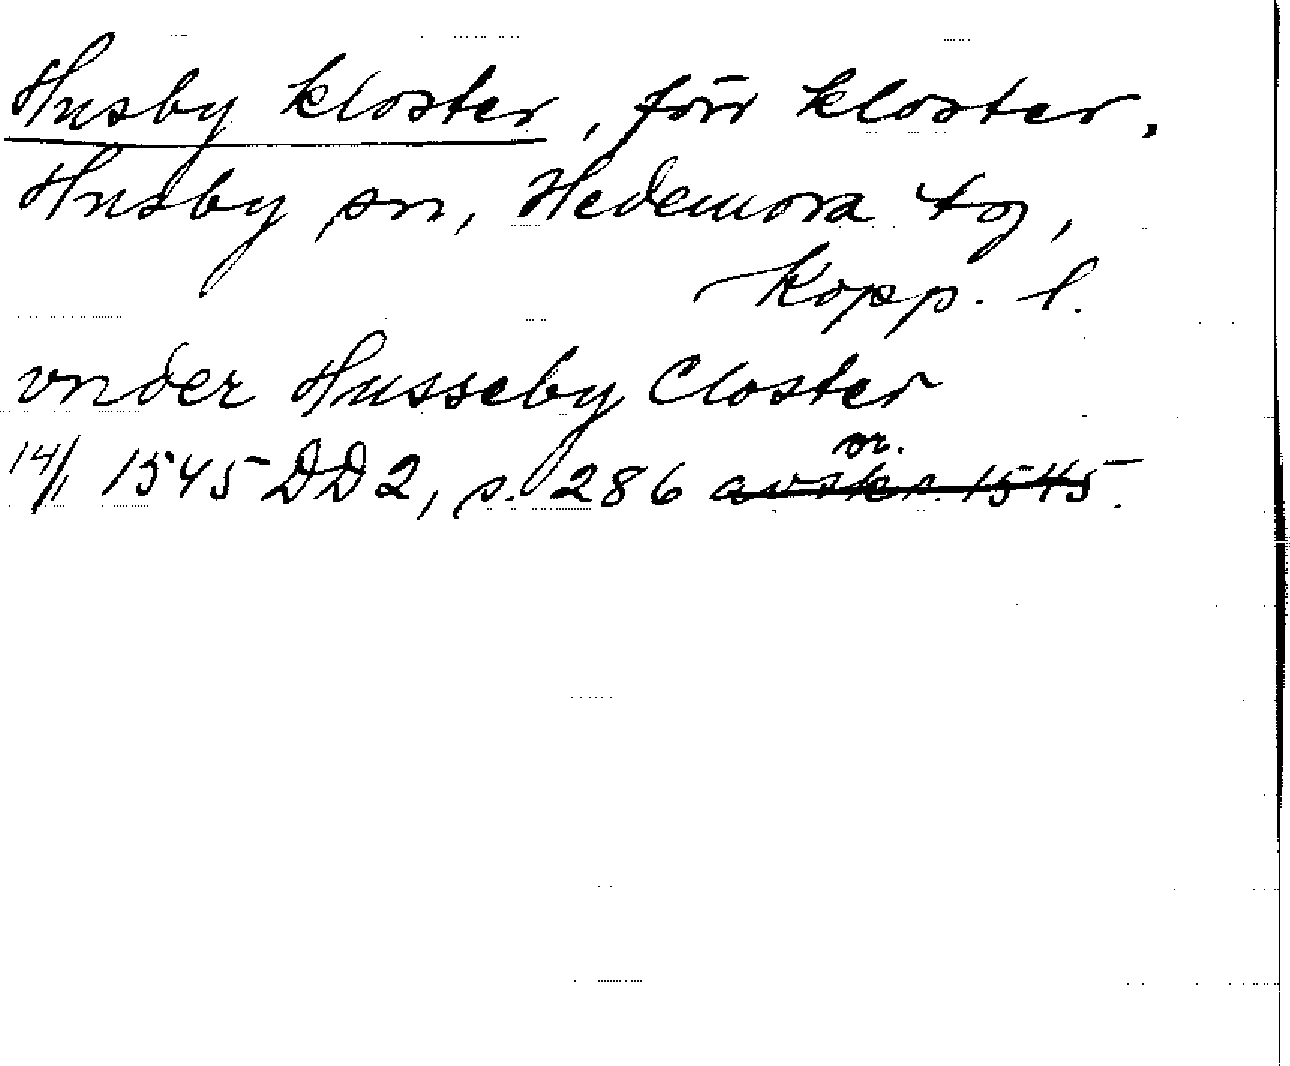 Husby kloster, förr kloster,
Husby sn, Hedemora tg,
Kopp. l.
vnder Husseby Closter
or.
14/1 1545 DD2, s. 286 avskr. 1545.